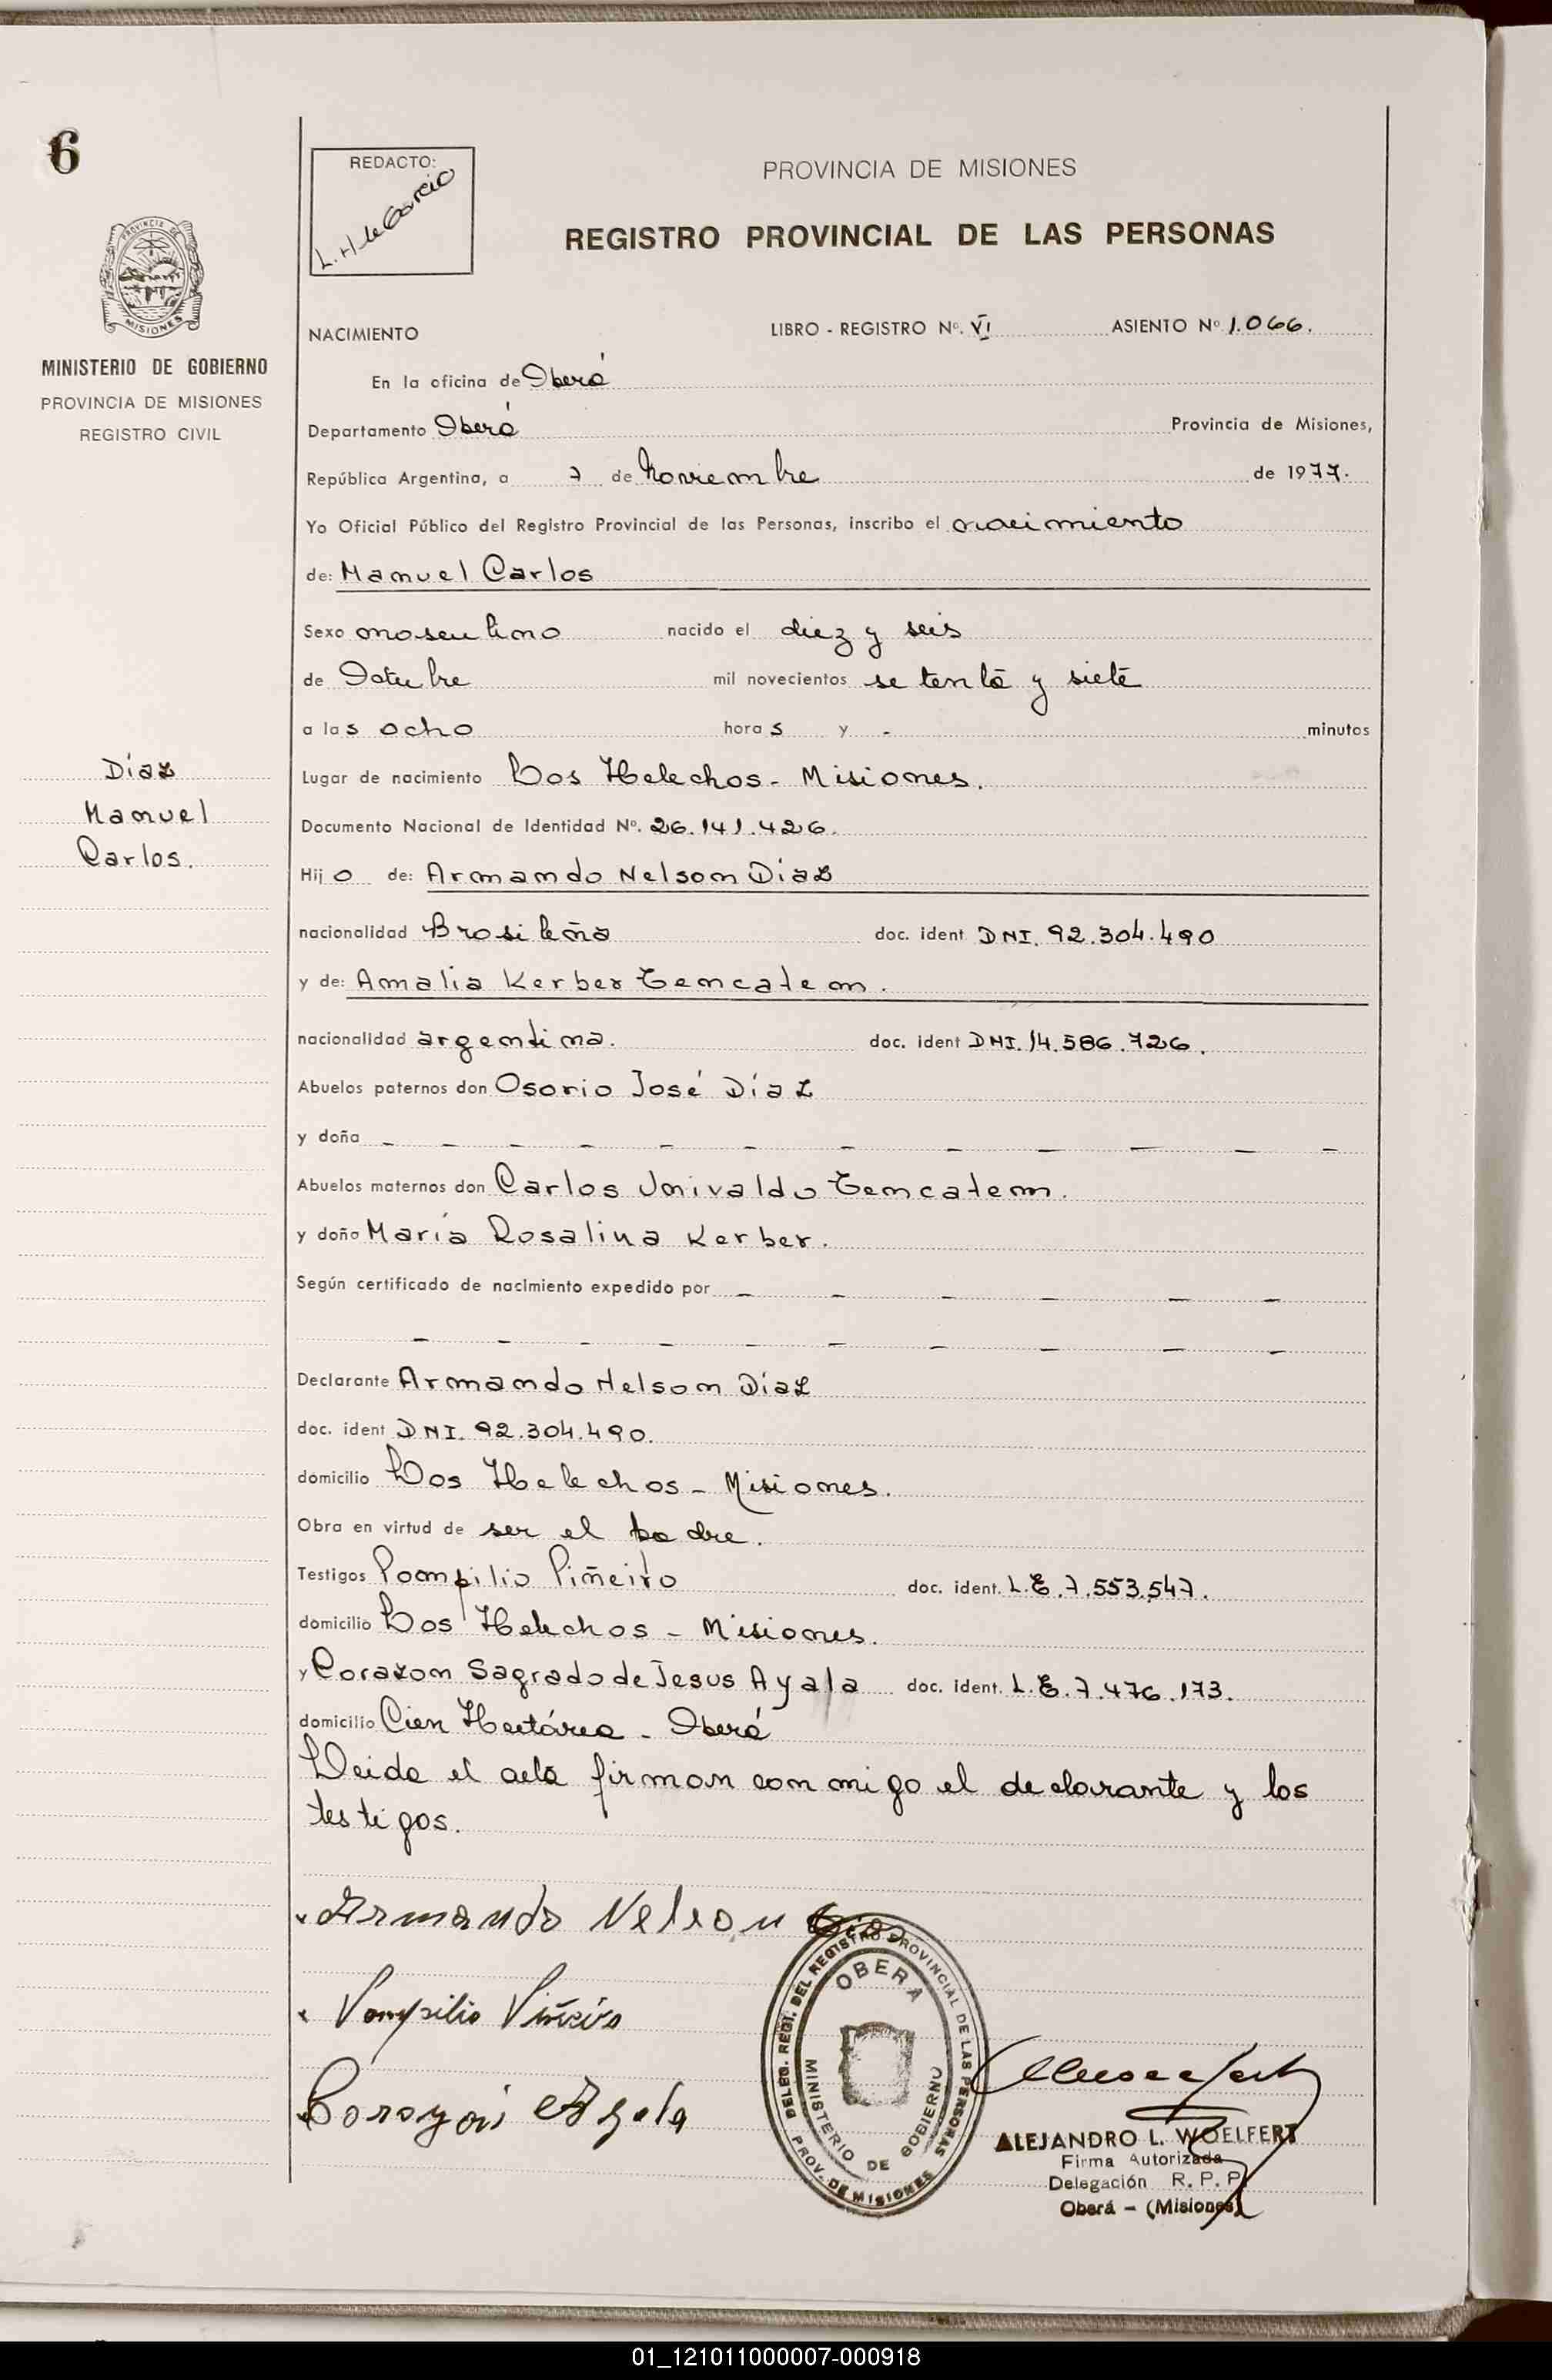 6
REDACTO:
L. H de Garcia
PROVINCIA DE MISIONES
REGISTRO PROVINCIAL DE LAS PERSONAS
PROVINCIA DE
MISIONES
MINISTERIO DE GOBIERNO
PROVINCIA DE MISIONES
REGISTRO CIVIL
NACIMIENTO LIBRO - REGISTRO Nº. VI ASIENTO Nº 1.066.
En la oficina de Oberá
Departamento Oberá Provincia de Misiones,
República Argentina, a 7 de Noviembre de 1977.
Yo Oficial Público del Registro Provincial de las Personas, inscribo el nacimiento
de: Manuel Carlos
Sexo masculino nacido el diez y seis
de Octubre mil novecientos setenta y siete
a las ocho horas y - minutos
Díaz
Manuel
Carlos.
Lugar de nacimiento Los Helechos - Misiones.
Documento Nacional de Identidad Nº. 26.141.426.
Hijo de: Armando Nelson Díaz
nacionalidad Brasileña doc. ident DNI. 92.304.490
y de: Amalia Kerber Tencaten.
nacionalidad argentina. doc. ident DNI. 14.586.726.
Abuelos paternos don Osorio José Díaz
y doña - - - - - - - - - - -
Abuelos maternos don Carlos Univaldo Tencaten.
y doña María Rosalina Kerber.
Según certificado de nacimiento expedido por - - - - - -
- - - - - - - - -
Declarante Armando Nelson Díaz
doc. ident DNI. 92.304.490.
domicilio Los Helechos - Misiones.
Obra en virtud de ser el padre.
Testigos Pompilio Piñeiro doc. ident. L.E. 7.553.547.
domicilio Los Helechos - Misiones.
y Corazon Sagrado de Jesus Ayala doc. ident. L.E. 7.476.173.
domicilio Cien Hectárea - Oberá
Leida el acta firman conmigo el declarante y los
testigos.
Armando Nelson Dias
Pompilio Piñeiro
Corazon Ayala
DELEG. REGT. DEL REGISTRO PROVINCIAL DE LAS PERSONAS
OBERA
MINISTERIO DE GOBIERNO
PROV. DE MISIONES
ALEJANDRO L. WOELFERT
Firma Autorizada
Delegación R. P. P.
Oberá - (Misiones)
01_121011000007-000918